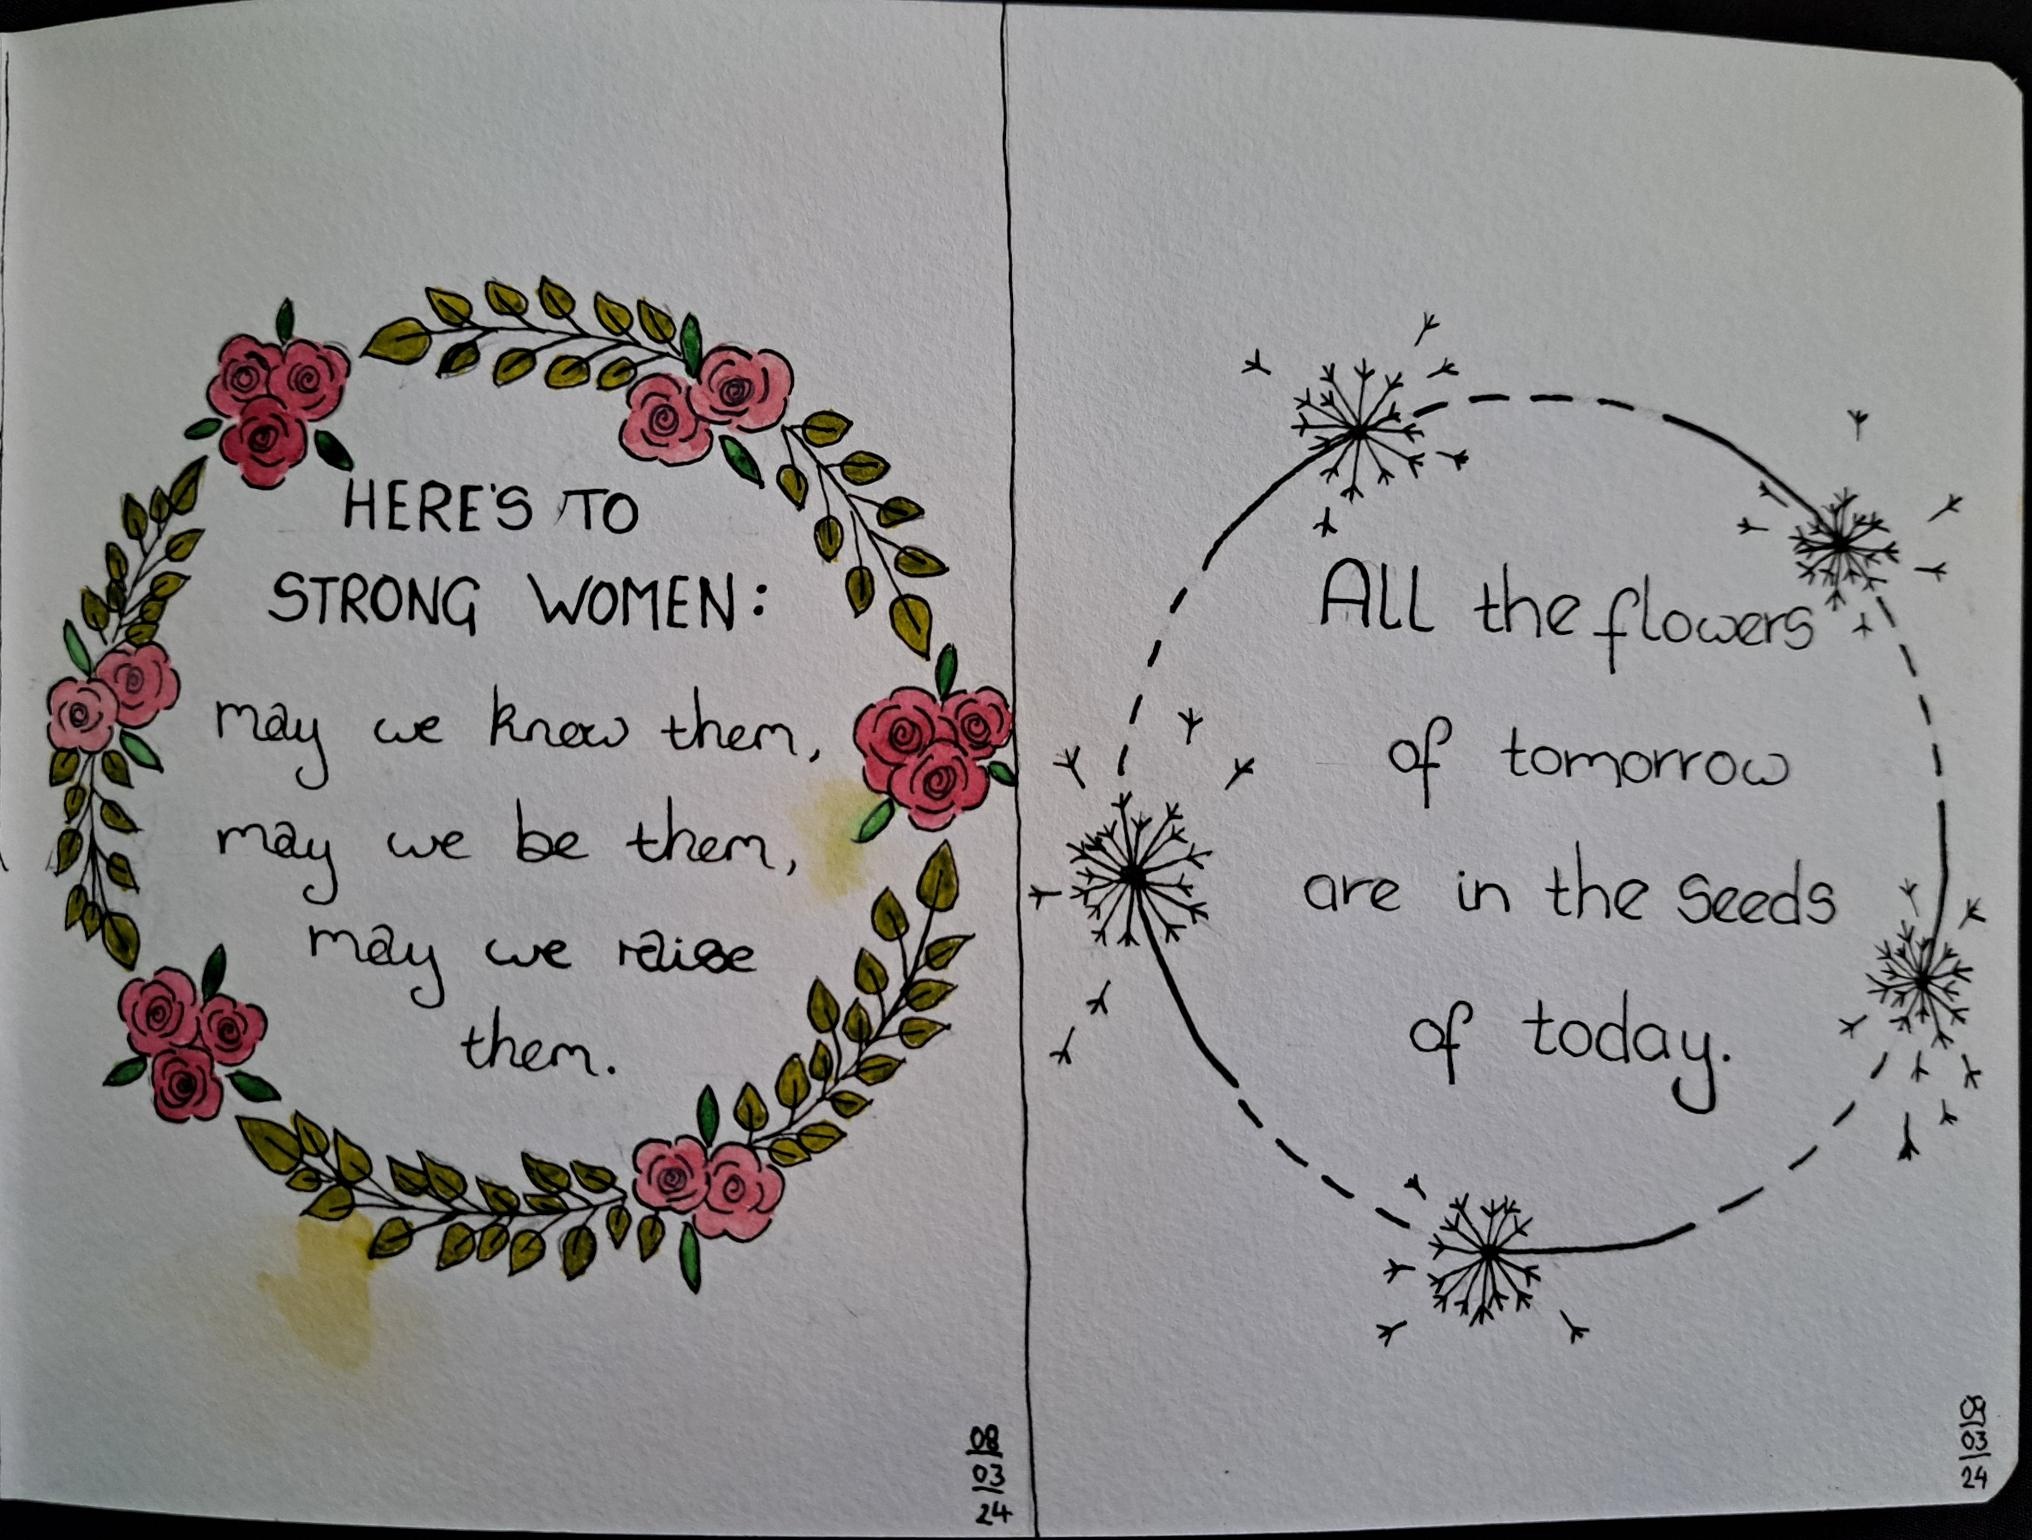 HERE'S TO
STRONG WOMEN:
may we know them,
may we be them,
may we raise
them.
08
03
24
All the flowers
of tomorrow
are in the seeds
of today.
09
03
24